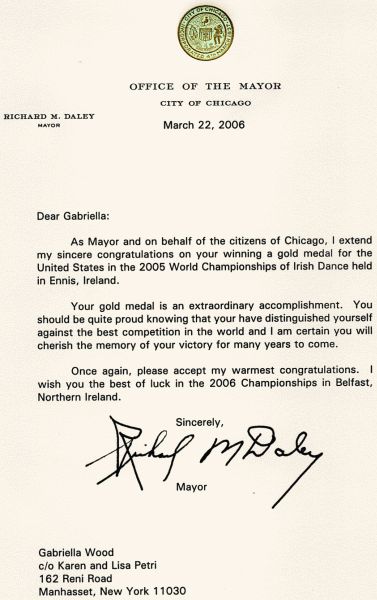 OFFICE OF THE MAYOR
CITY OF CHICAGO
RICHARD M. DALEY
MAYOR
March 22, 2006
Dear Gabriella:
As Mayor and on behalf of the citizens of Chicago, I extend
my sincere congratulations on your winning a gold medal for the
United States in the 2005 World Championships of Irish Dance held
in Ennis, Ireland.
Your gold medal is an extraordinary accomplishment. You
should be quite proud knowing that your have distinguished yourself
against the best competition in the world and I am certain you will
cherish the memory of your victory for many years to come.
Once again, please accept my warmest congratulations. I
wish you the best of luck in the 2006 Championships in Belfast,
Northern Ireland.
Sincerely,
Richard M Daley
Mayor
Gabriella Wood
c/o Karen and Lisa Petri
162 Reni Road
Manhasset, New York 11030